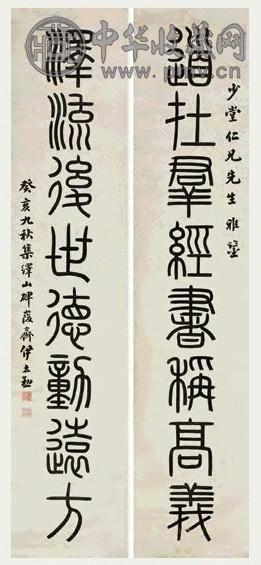 中华收藏网
少堂仁兄先生雅鑒
道在羣經書稱高義
澤流後世德動遠方
癸亥九秋集繹山碑葰齋伊立勳